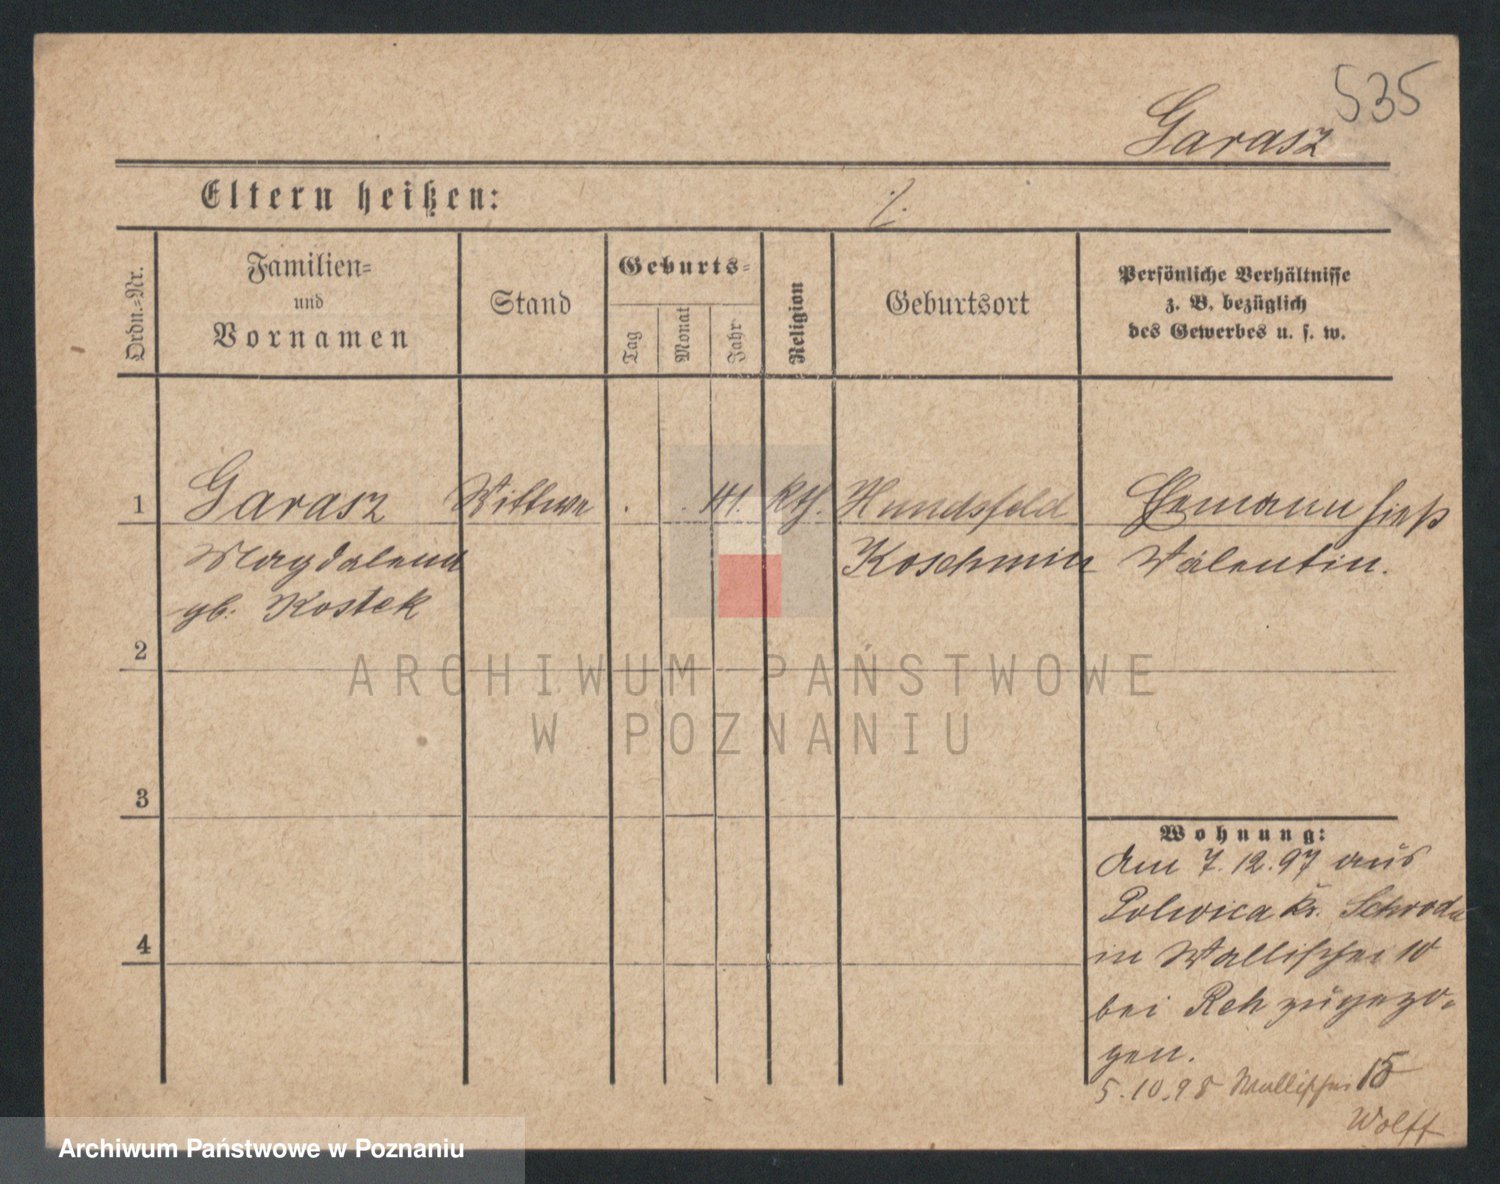 535
Garasz
Eltern heißen: ·/.
Ordn.=Nr.
Familien=
und
Vornamen
Stand
Geburts=
Tag
Monat
Jahr
Religion
Geburtsort
Persönliche Verhältnisse
z. B. bezüglich
des Gewerbes u. s. w.
1 Garasz Wittwe . . 41. kth. Hundsfeld Ehemann hieß
Magdalena Koschmin Valentin.
gb. Kostek
2
3
4
ARCHIWUM PAŃSTWOWE
W POZNANIU
Wohnung:
Am 7.12.97 aus
Polwica Kr. Schroda
in Wallischei 10
bei Reh zugezo-
gen.
5.10.98 Wallischei 15
Wolff
Archiwum Państwowe w Poznaniu